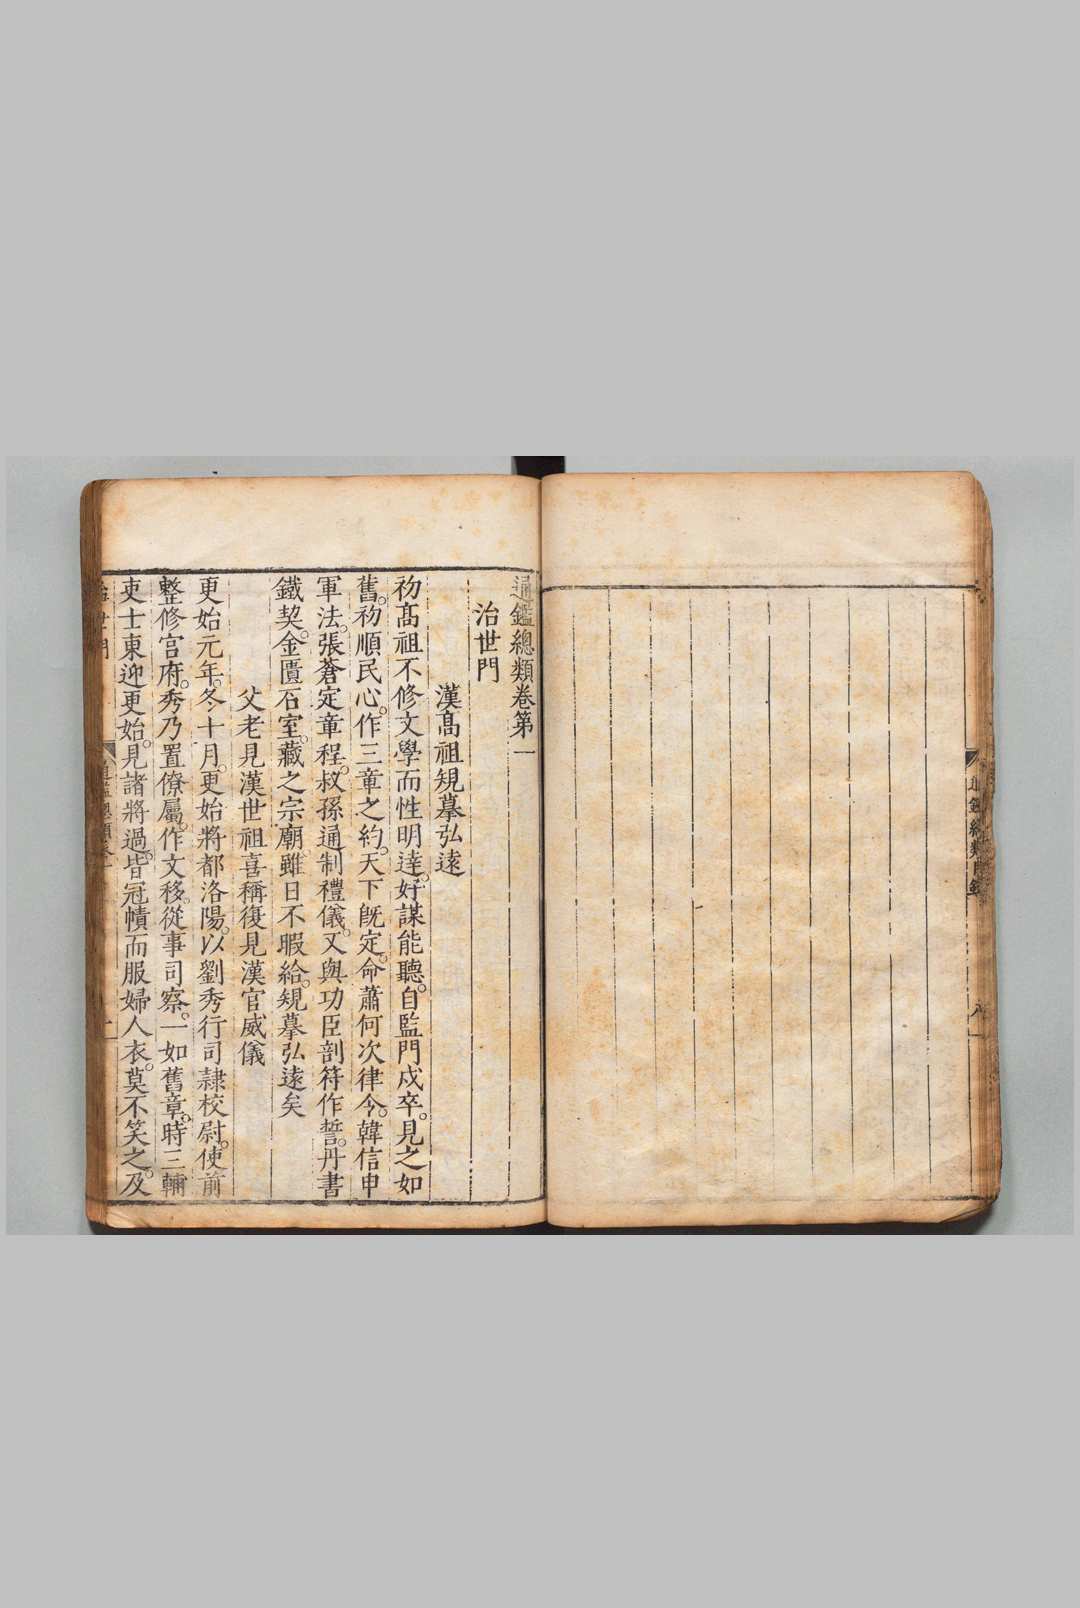 通鑑總類目錄
八
通鑑總類卷第一
治世門
漢髙祖規摹弘遠
初髙祖不修文學而性明達。好謀能聽。自監門戍卒。見之如
舊。初順民心。作三章之約。天下旣定。命蕭何次律令。韓信申
軍法。張蒼定章程。叔孫通制禮儀。又與功臣剖符作誓。丹書
鐵契。金匱石室。藏之宗廟。雖日不暇給。規摹弘遠矣
父老見漢世祖喜稱復見漢官威儀
更始元年。冬十月。更始將都洛陽。以劉秀行司隷校尉。使前
整修宫府。秀乃置僚屬。作文移。從事司察。一如舊章。時三輔
吏士東迎更始。見諸將過。皆冠幘而服婦人衣。莫不笑之。及
治世門
通鑑總類卷一
一